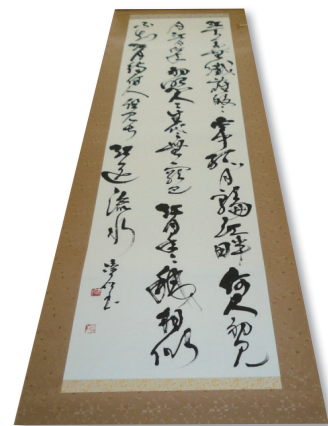 江天一色無纖塵皎々空中孤月輪江畔何人初見
月江月何年初照人々生代々無窮已江月年々祗相似
不知江月待何人但見長江送流水